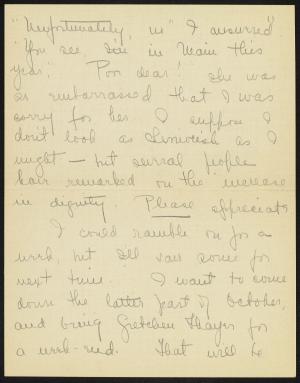 "Unfortunately, no" I answered"
"You see, I'm in Main this
year." "Poor dear!" She was
so embarrassed that I was
sorry for her. I suppose I
don't look as Seniorish as I
might – but several people
have remarked on the increase
in dignity. Please appreciate
I could ramble on for a
week, but I'll save some for
next time. I want to come
down the latter part of October,
and bring Gretchen Thayer for
a week-end. That will be